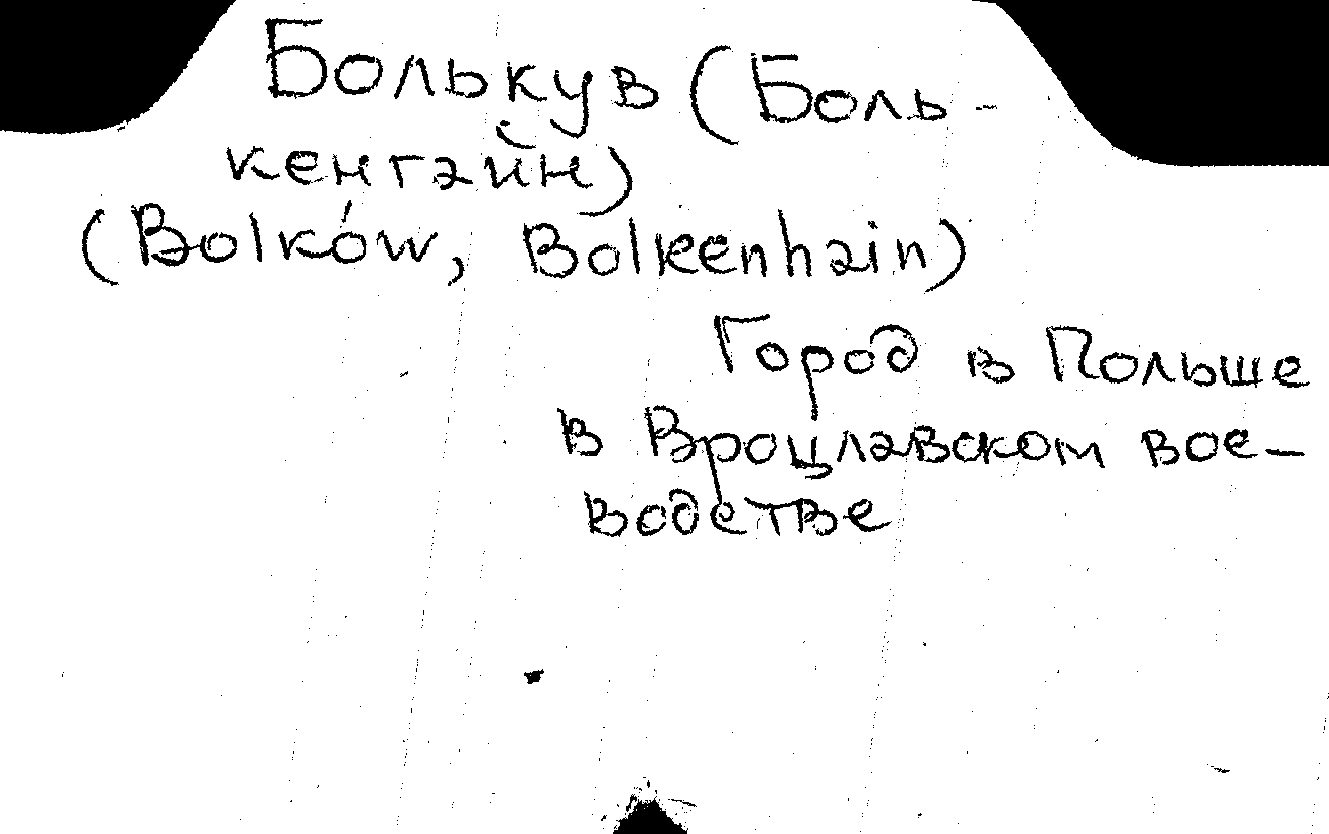 Болькув (Боль-
кенгайн)
(Bolków, Bolkenhain)
Город в Польше
в Вроцлавском вое-
водстве